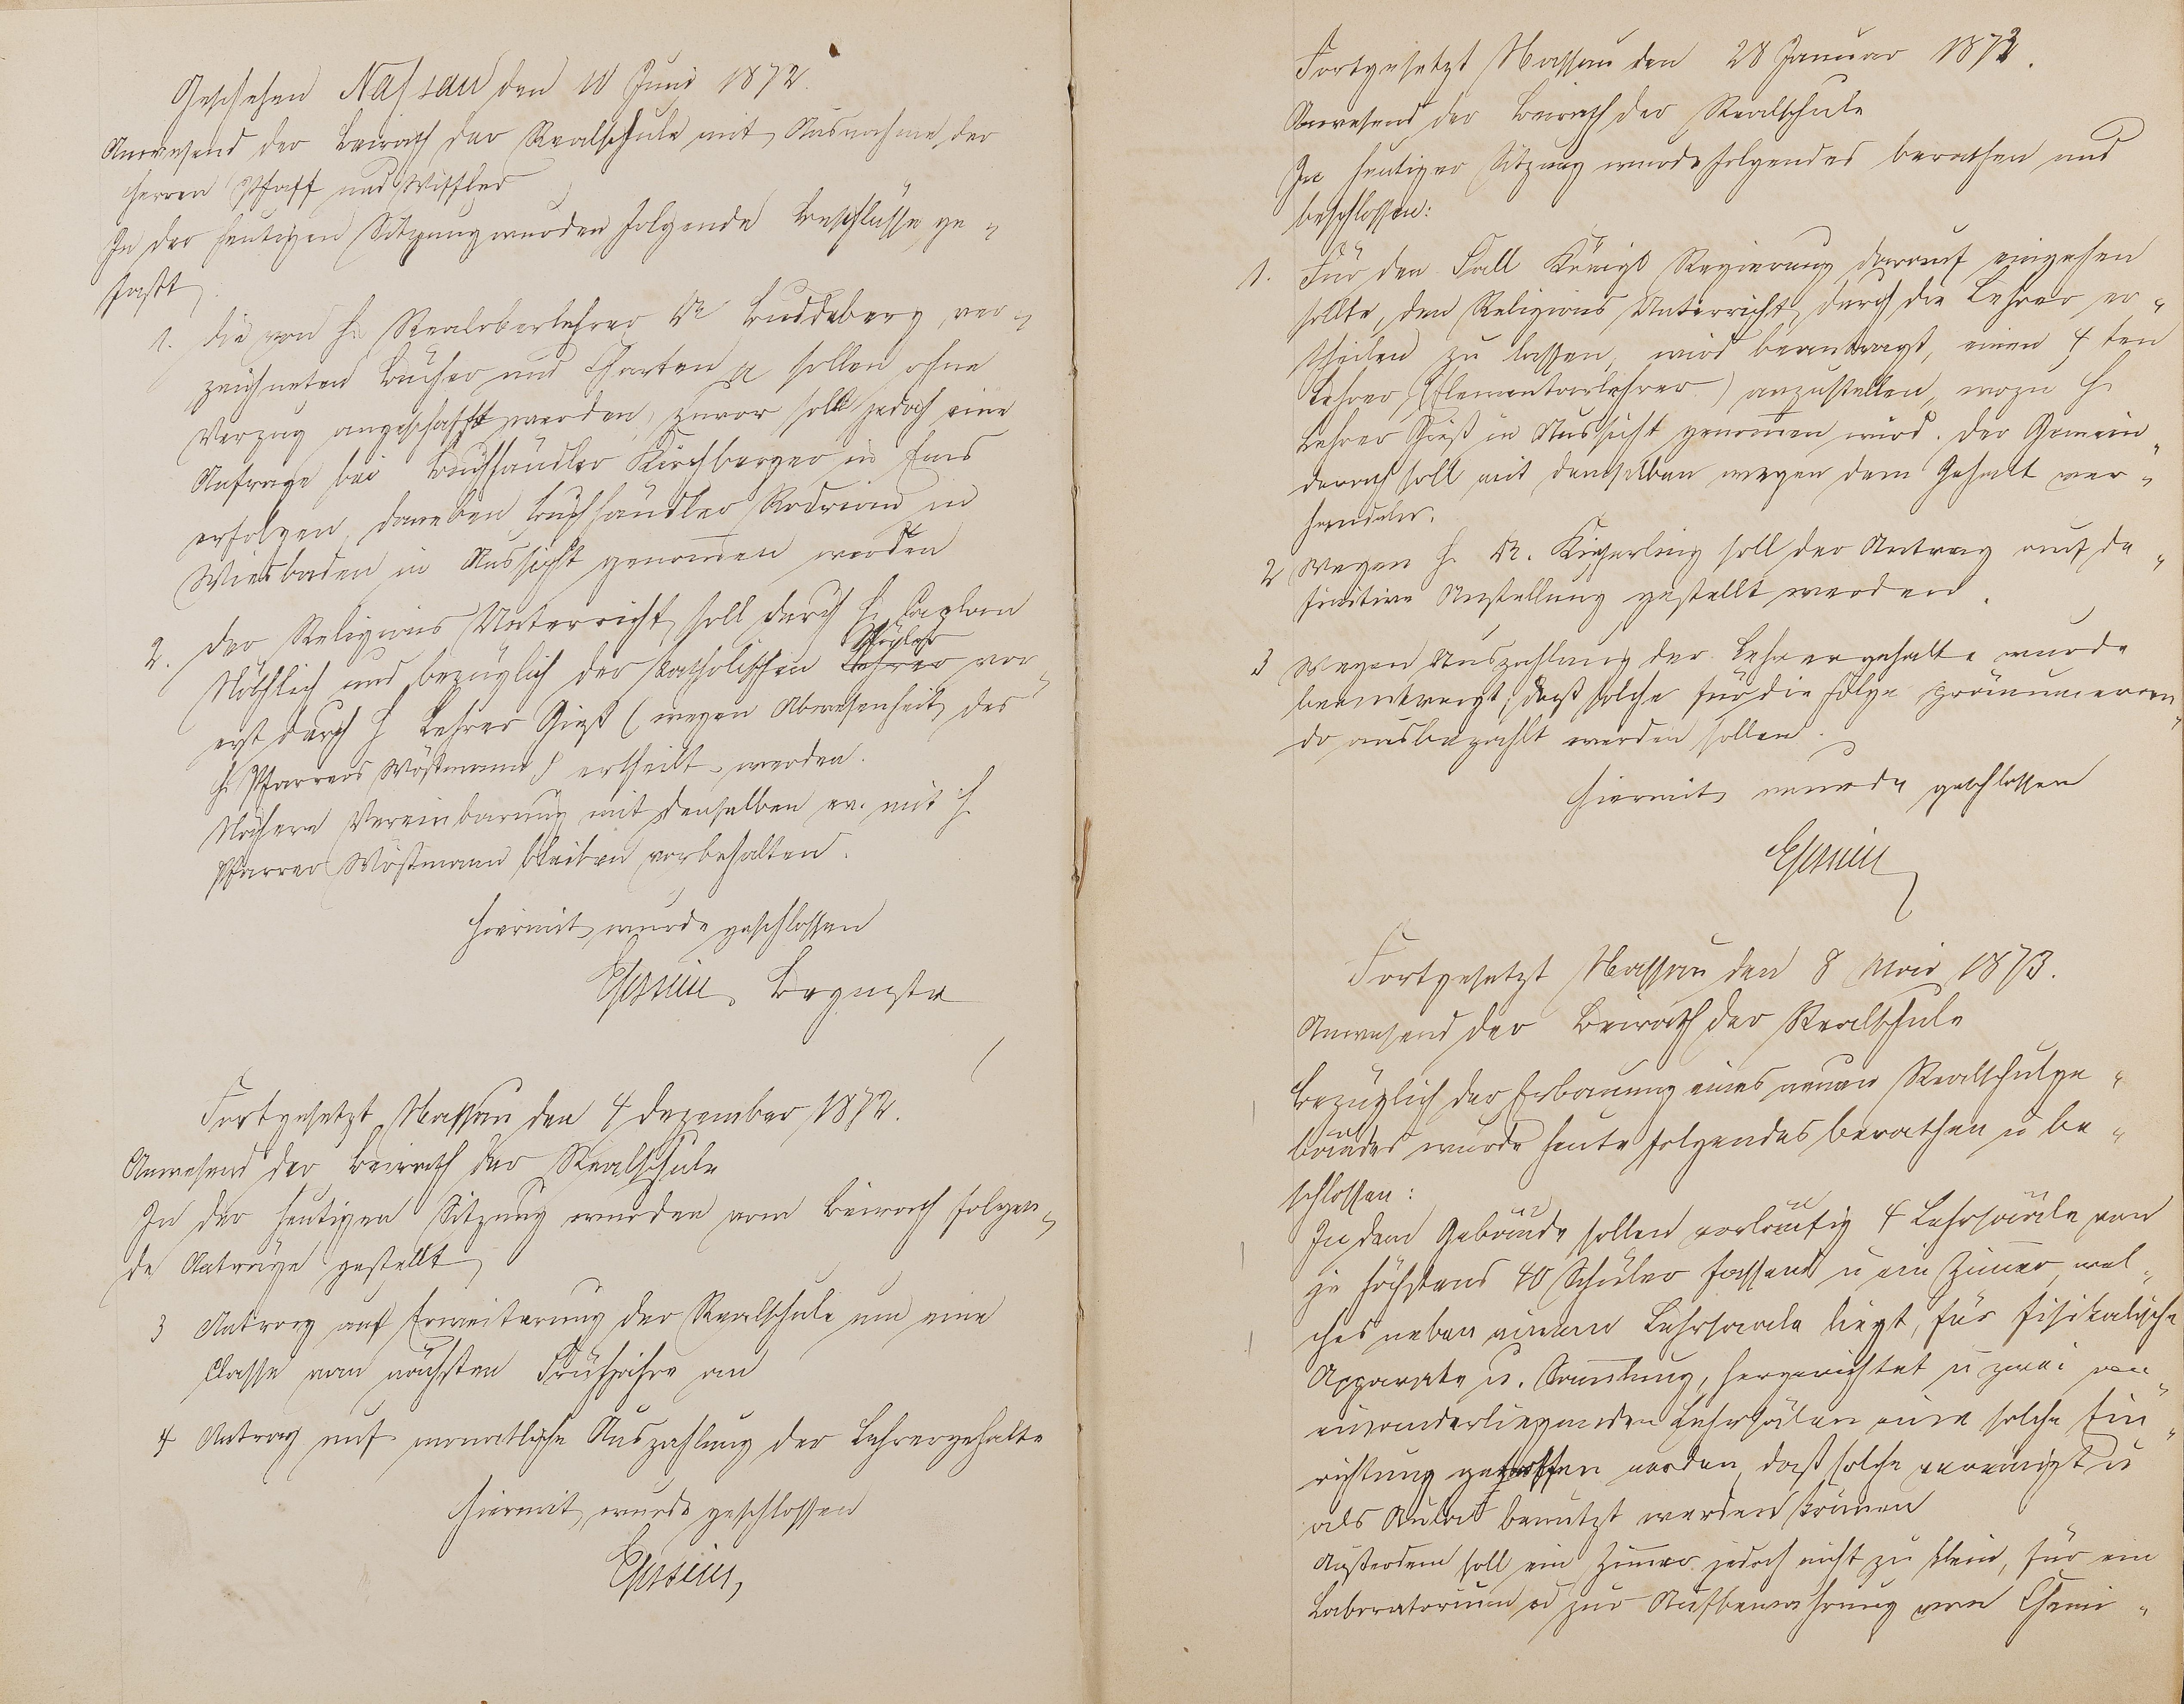 Geschehen Nassau den 10 Juni 1872.
Anwesend der Beirath der Realschule mit Ausnahme der
Herren Pfaff und Wissler
In der heutigen Sitzung wurden folgende Beschlüsse ge-
faßt
1. Die von H. Realoberlehrer Dr Buddeberg ver-
zeichneten Bücher und Charten sollen ohne
Verzug angeschafft werden, zuvor soll jedoch eine
Anfrage bei Buchhändler Kirchberger in Ems
erfolgen, daneben Buchhändler Rodrian in
Wiesbaden in Aussicht genommen werden
2. Der Religions Unterricht soll durch H. Caplan
Nöthlich und bezüglich der katholischen Lehrer Schüler vor-
erst durch H Lehrer Gieß (wegen Abwesenheit des
H. Pfarrers Wößmann) ertheilt werden.
Nähere Vereinbarung mit denselben ev. mit H.
Pfarrer Wößmann bleiben vorbehalten.
Hiermit wurde geschlossen
Fortgesetzt Nassau den 4 Dezember 1872.
Anwesend der Beirath der Realschule
In der heutigen Sitzung wurden vom Beirath folgen-
de Anträge gestellt
3 Antrag auf Erweiterung der Realschule um eine
Classe vom nächsten Frühjahre an
4 Antrag auf monatliche Auszahlung der Lehrergehalte
Hiermit wurde geschlossen
Fortgesetzt Nassau den 28 Januar 1873.
Anwesend der Beirath der Realschule
In heutiger Sitzung wurde folgendes berathen und
beschlossen:
1. Für den Fall Königl Regierung darauf eingehen
sollte, den Religions Unterricht durch die Lehrer er-
theilen zu lassen, wird beantragt, einen 4 ten
Lehrer (Elementarlehrer) anzustellen, wozu H.
Lehrer Gieß in Aussicht genommen wird. Der Gemein-
derath soll mit demselben wegen dem Gehalt ver-
handeln.
2 Wegen H. Dr. Kieserling soll der Antrag auf de-
finitive Anstellung gestellt werden.
3 Wegen Auszahlung der Lehrergehalte wurde
beantragt, daß solche für die Folge pränumeran-
do ausbezahlt werden sollen.
Hiermit wurde geschlossen
Fortgesetzt Nassau den 8 Mai 1873.
Anwesend der Beirath der Realschule
Bezüglich der Erbauung eines neuen Realschulge-
bäudes wurde heute folgendes berathen u be-
schlossen:
In dem Gebäude sollen vorläufig 4 Lehrsääle von
je höchstens 40 Schüler fassend u ein Zimmer, wel-
ches neben einem Lehrsaale liegt, für fisikalische
Apparate u. Sammlung, hergerichtet u zwei an-
einanderliegenden Lehrsälen eine solche Ein-
richtung getroffen werden, daß solche vereinigt u
als Aula benutzt werden können
Außerdem soll ein Zimmer jedoch nicht zu klein, für ein
Laboratorium u zur Aufbewahrung von Chemi-